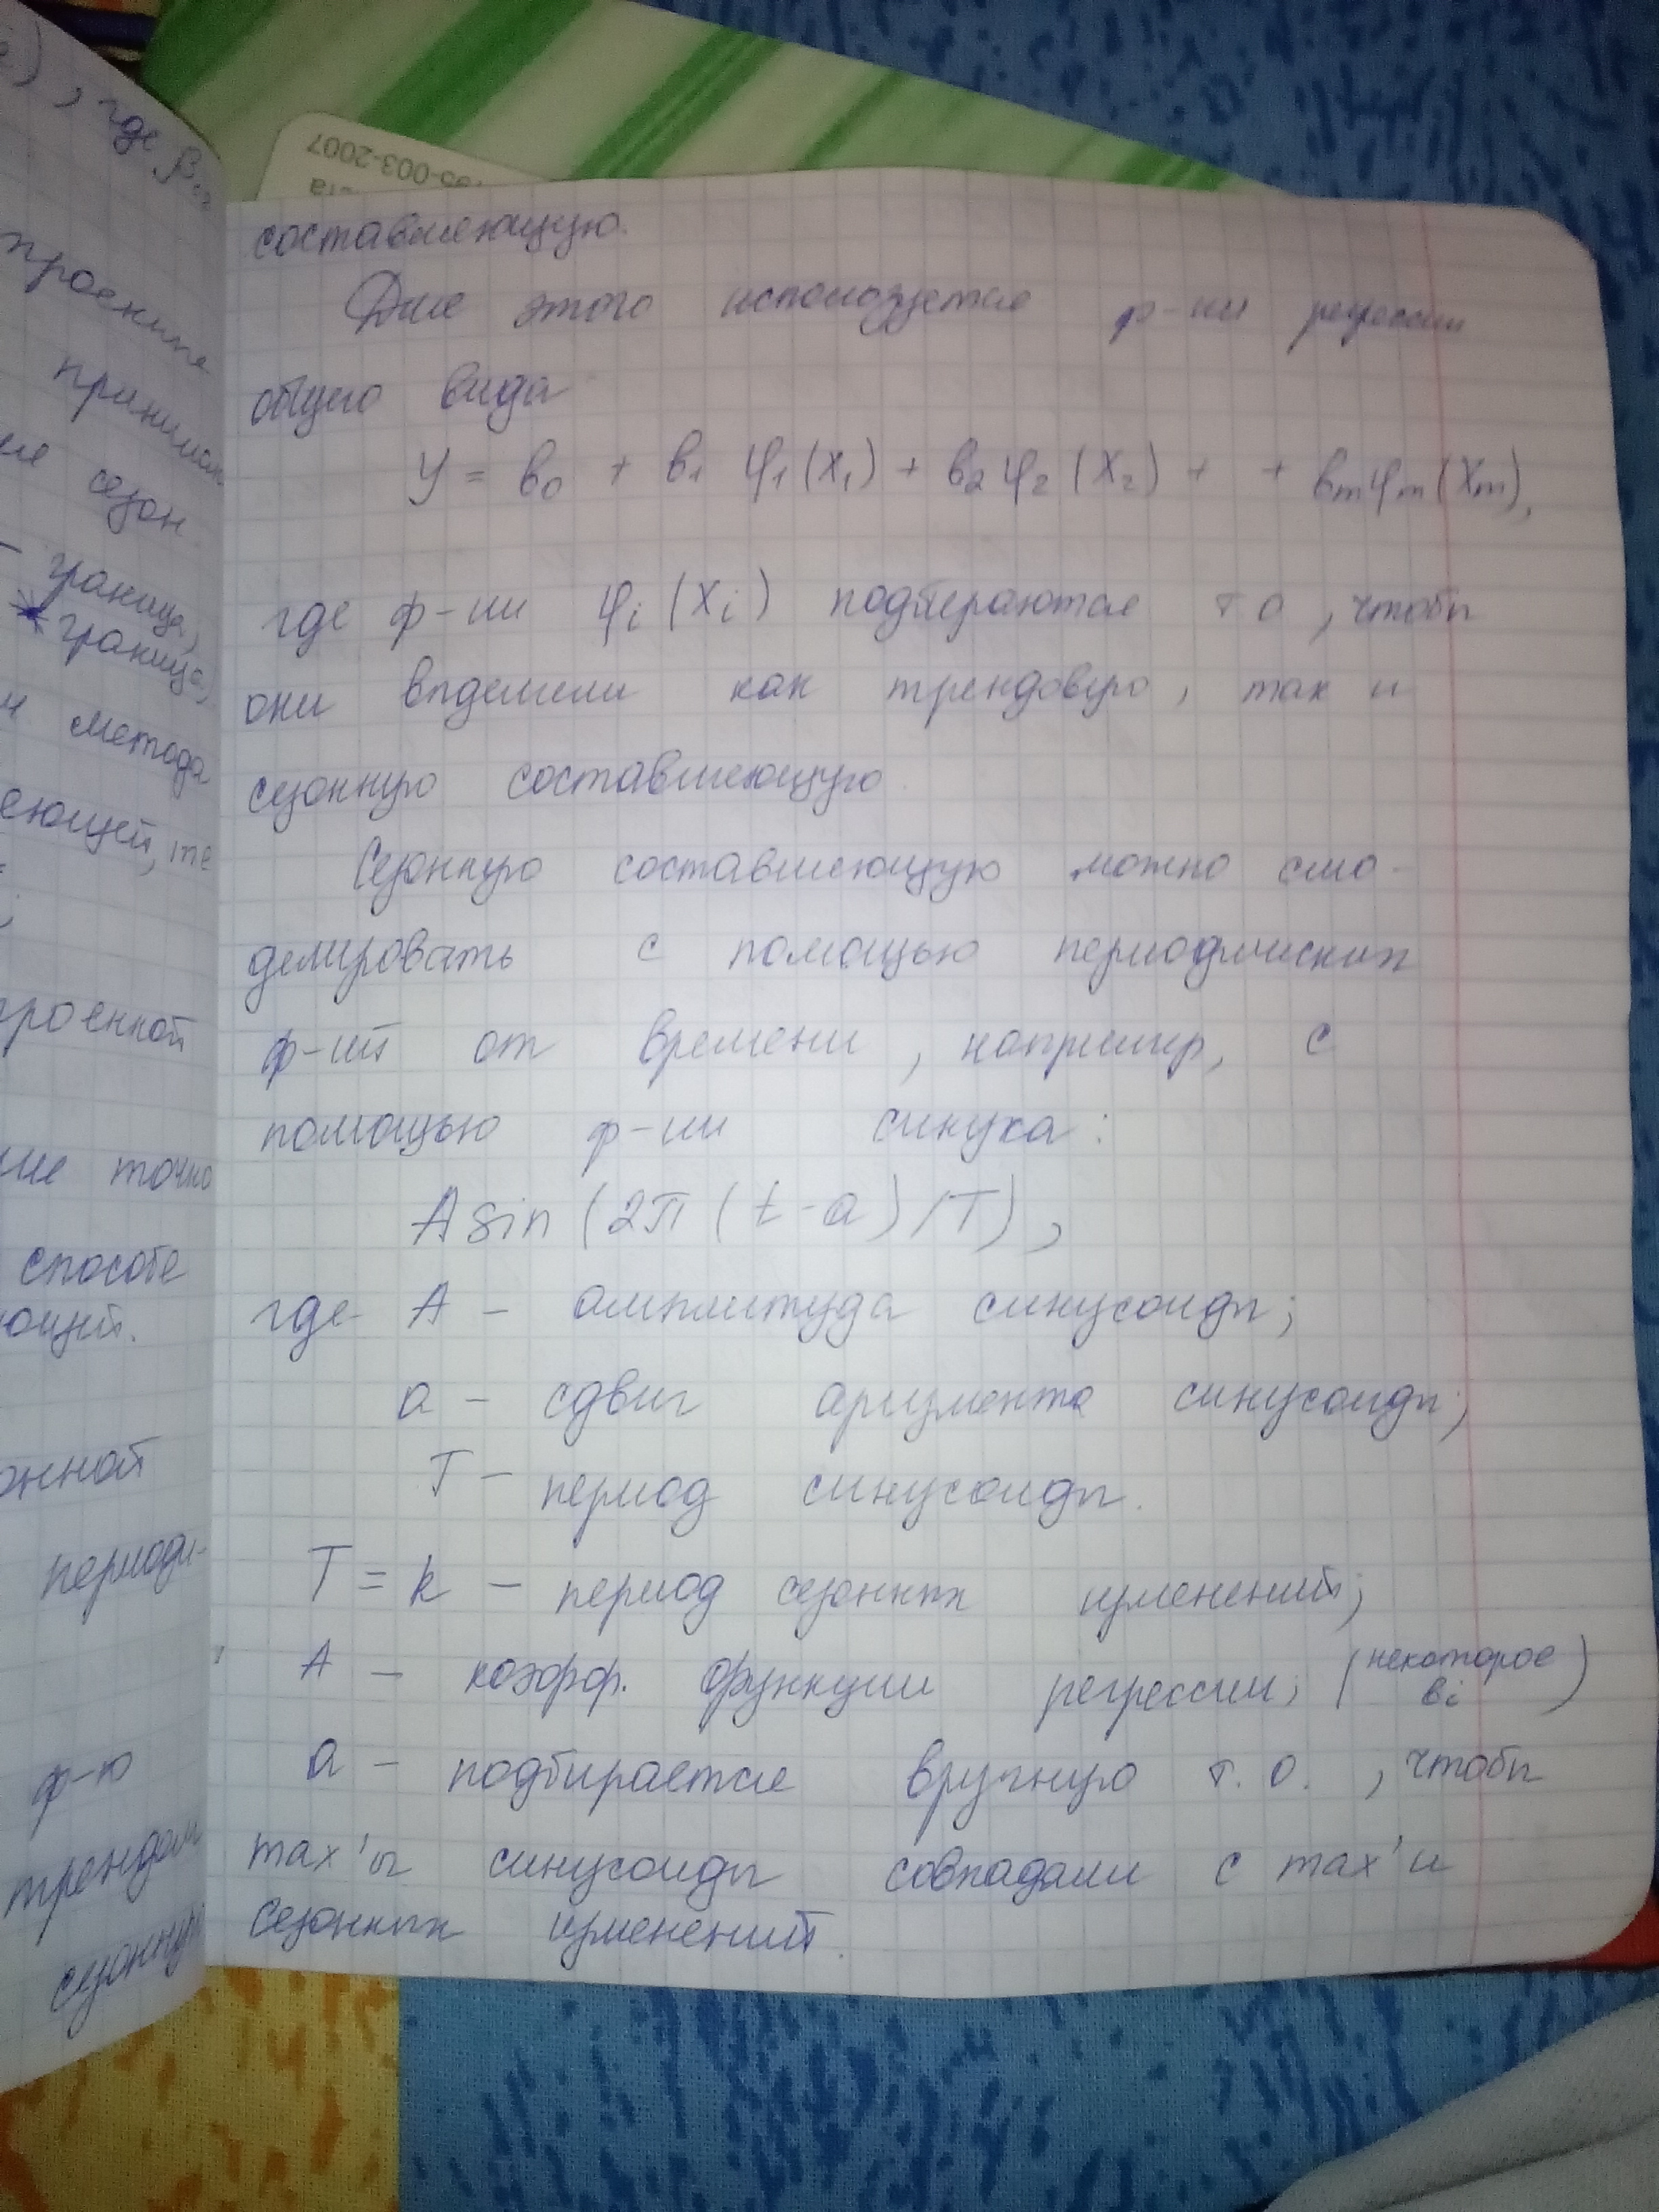 е), где β
проекти
принима
ие сезон.
— граница,
* граница,
и метода
еющей, те
роенной
ние точно
способе
ющей.
онной
периоди-
ф-ю
трендам
сезонную
95-003-2007
ета
составляющую.
Для этого используется ф-ии регрессии
общего вида
y = b₀ + b₁ φ₁(x₁) + b₂ φ₂(x₂) + + bₘφₘ(xₘ),
где ф-ии φᵢ(xᵢ) подбираются т о, чтобы
они выделили как трендовую, так и
сезонную составляющую
Сезонную составляющую можно смо-
делировать с помощью периодических
ф-ий от времени, например, с
помощью ф-ии синуса:
A sin (2π (t-a)/T),
где A — амплитуда синусоиды;
a — сдвиг аргумента синусоиды;
T — период синусоиды.
T = k — период сезонных изменений;
A — коэфф. функции регрессии; (некоторое bᵢ)
a — подбирается вручную т. о., чтобы
max'ы синусоиды совпадали с max'и
сезонных изменений.